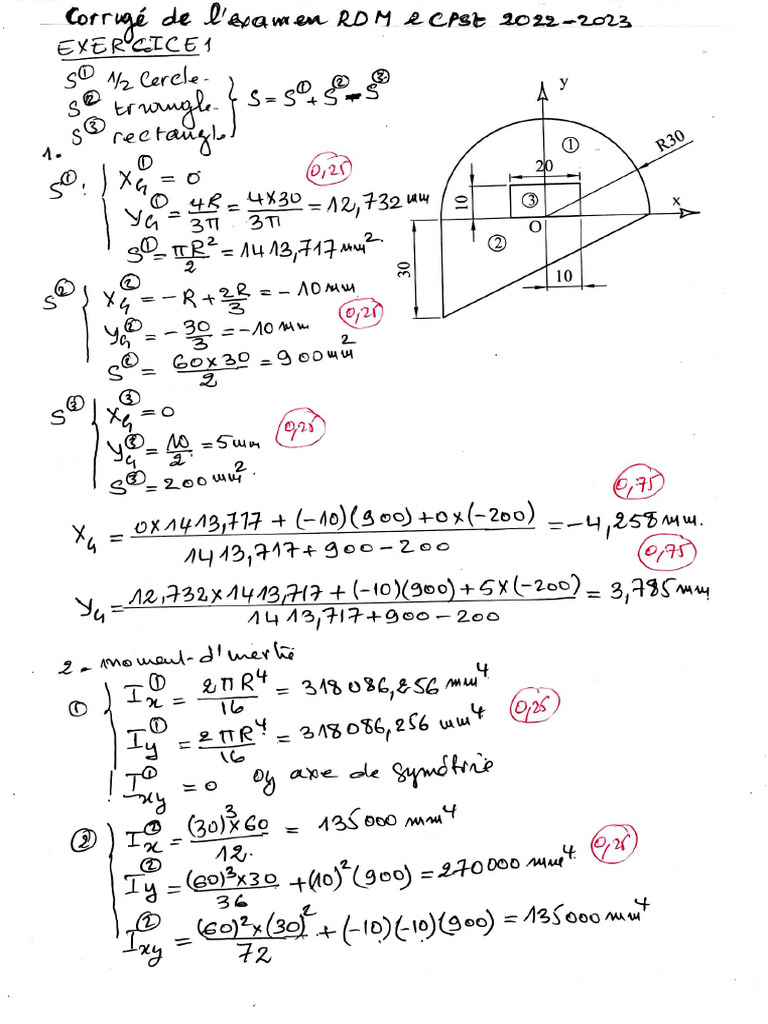 Corrigé de l'examen RDM 2 CPST 2022-2023
EXERCICE 1
S① 1/2 Cercle.
S② triangle.
S③ rectangle
S = S① + S② - S③
1.
S①: X_G① = 0
0,25
Y_G① = 4R/3π = 4×30/3π = 12,732 mm
S① = πR²/2 = 1413,717 mm².
S② X_G② = -R + 2R/3 = -10 mm
Y_G② = -30/3 = -10 mm
0,25
S② = 60×30/2 = 900 mm²
S③ X_G③ = 0
Y_G③ = 10/2 = 5 mm
0,25
S③ = 200 mm².
y
①
R30
20
10
③
x
O
②
30
10
0,75
X_G = (0×1413,717 + (-10)(900) + 0×(-200))/(1413,717 + 900 - 200) = -4,258 mm.
0,75
Y_G = (12,732×1413,717 + (-10)(900) + 5×(-200))/(1413,717 + 900 - 200) = 3,785 mm
2 - moment d'inertie
① I_x① = 2πR⁴/16 = 318086,256 mm⁴
0,25
I_y① = 2πR⁴/16 = 318086,256 mm⁴
I_xy① = 0 Oy axe de symétrie
② I_x② = (30)³×60/12. = 135000 mm⁴
0,25
I_y② = (60)³×30/36 + (10)²(900) = 270000 mm⁴.
I_xy② = (60)²×(30)²/72 + (-10)(-10)(900) = 135000 mm⁴